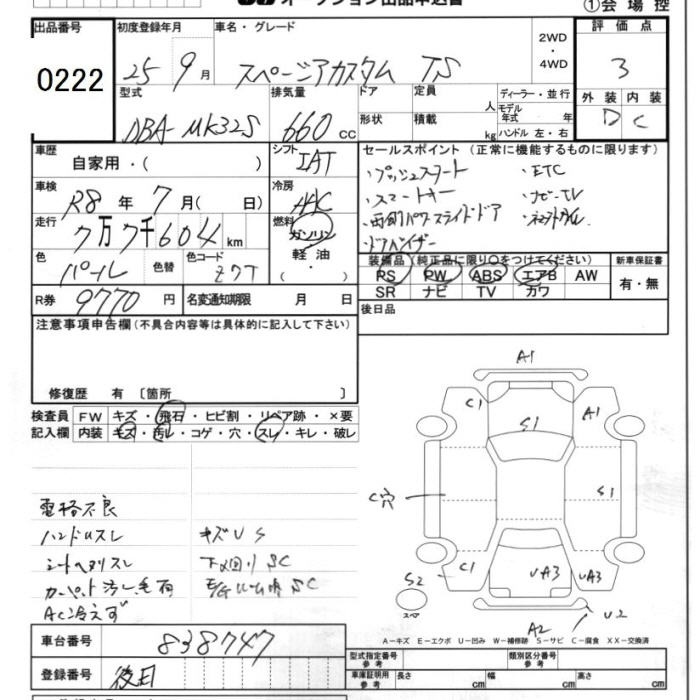 オークション出品申込書
①会場控
出品番号 初度登録年月 車名・グレード 評価点
0222 25 9月 スペーシアカスタム TS 2WD・4WD 3
型式 排気量 ドア 定員 ディーラー・並行 外装 内装
DBA-MK32S 660cc 形状 積載 人 kg モデル年式 年 ハンドル 左・右 D C
車歴 自家用・( ) シフト IAT セールスポイント (正常に機能するものに限ります)
車検 R8年7月( 日) 冷房 AAC ・プッシュスタート ・ETC
・スマートキー ・ナビ・TV
走行 7万7千604km 燃料 ガソリン 軽油 ( ・ ) ・両側パワースライドドア
・ドアバイザー
色 パール 色替 色コード Z7T 装備品 (純正品に限り〇をつけてください) 新車保証書
PS PW ABS エアB AW 有・無
SR ナビ TV カワ
R券 9770円 名変通知期限 月 日 後日品
注意事項申告欄 (不具合内容等は具体的に記入して下さい)
修復歴 有 〔箇所 〕
検査員 FW キズ・飛石・ヒビ割・リペア跡・×要
記入欄 内装 キズ・汚レ・コゲ・穴・スレ・キレ・破レ
A1
C1 S1 A1
C穴 S1
S2 C1 UA3 UA3
スペア A2 U2
電格不良
ハンドルスレ キズUS
シートヘタリスレ 下廻りSC
カーペット汚レ毛有 E/GルームSC
AC冷えず
A-キズ E-エクボ U-凹み W-補修跡 S-サビ C-腐食 XX-交換済
車台番号 838747
型式指定番号 参考 類別区分番号 参考
登録番号 後日
車庫証明用 参考 長さ cm 幅 cm 高さ cm